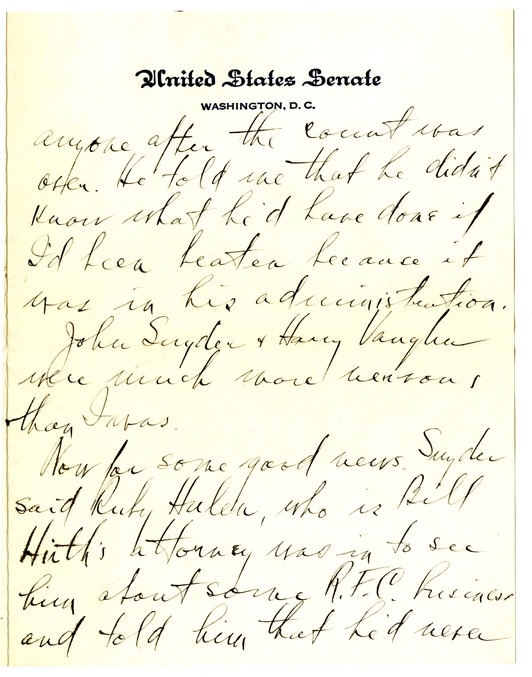 United States Senate
WASHINGTON, D. C.
anyone after the count was
over. He told me that he didn't
know what he'd have done if
I'd been beaten because it
was in his administration.
John Snyder & Harry Vaughan
were much more nervous
than I was.
Now for some good news. Snyder
said Ruby Hulen, who is Bill
Hirth's attorney was in to see
him about some R.F.C. business
and told him that he'd never